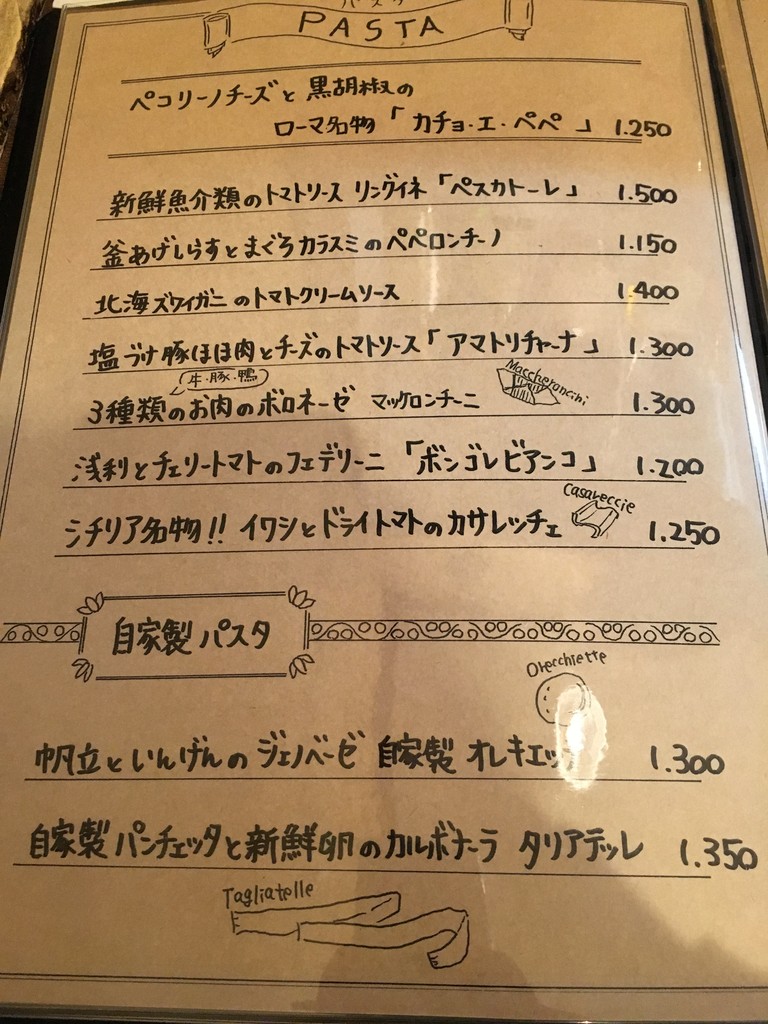 PASTA
ペコリーノチーズと黒胡椒の
ローマ名物「カチョ・エ・ペペ」 1.250
新鮮魚介類のトマトソース リングイネ「ペスカトーレ」 1.500
釜あげしらすとまぐろカラスミのペペロンチーノ 1.150
北海ズワイガニのトマトクリームソース 1.400
塩づけ豚ほほ肉とチーズのトマトソース「アマトリチャーナ」 1.300
牛・豚・鴨
Maccheroncini
3種類のお肉のボロネーゼ マッケロンチーニ 1.300
浅利とチェリートマトのフェデリーニ「ボンゴレビアンコ」 1.200
Casareccie
シチリア名物!! イワシとドライトマトのカサレッチェ 1.250
自家製パスタ
Orecchiette
帆立といんげんのジェノベーゼ 自家製 1.300
自家製パンチェッタと新鮮卵のカルボナーラ タリアテッレ 1.350
Tagliatelle